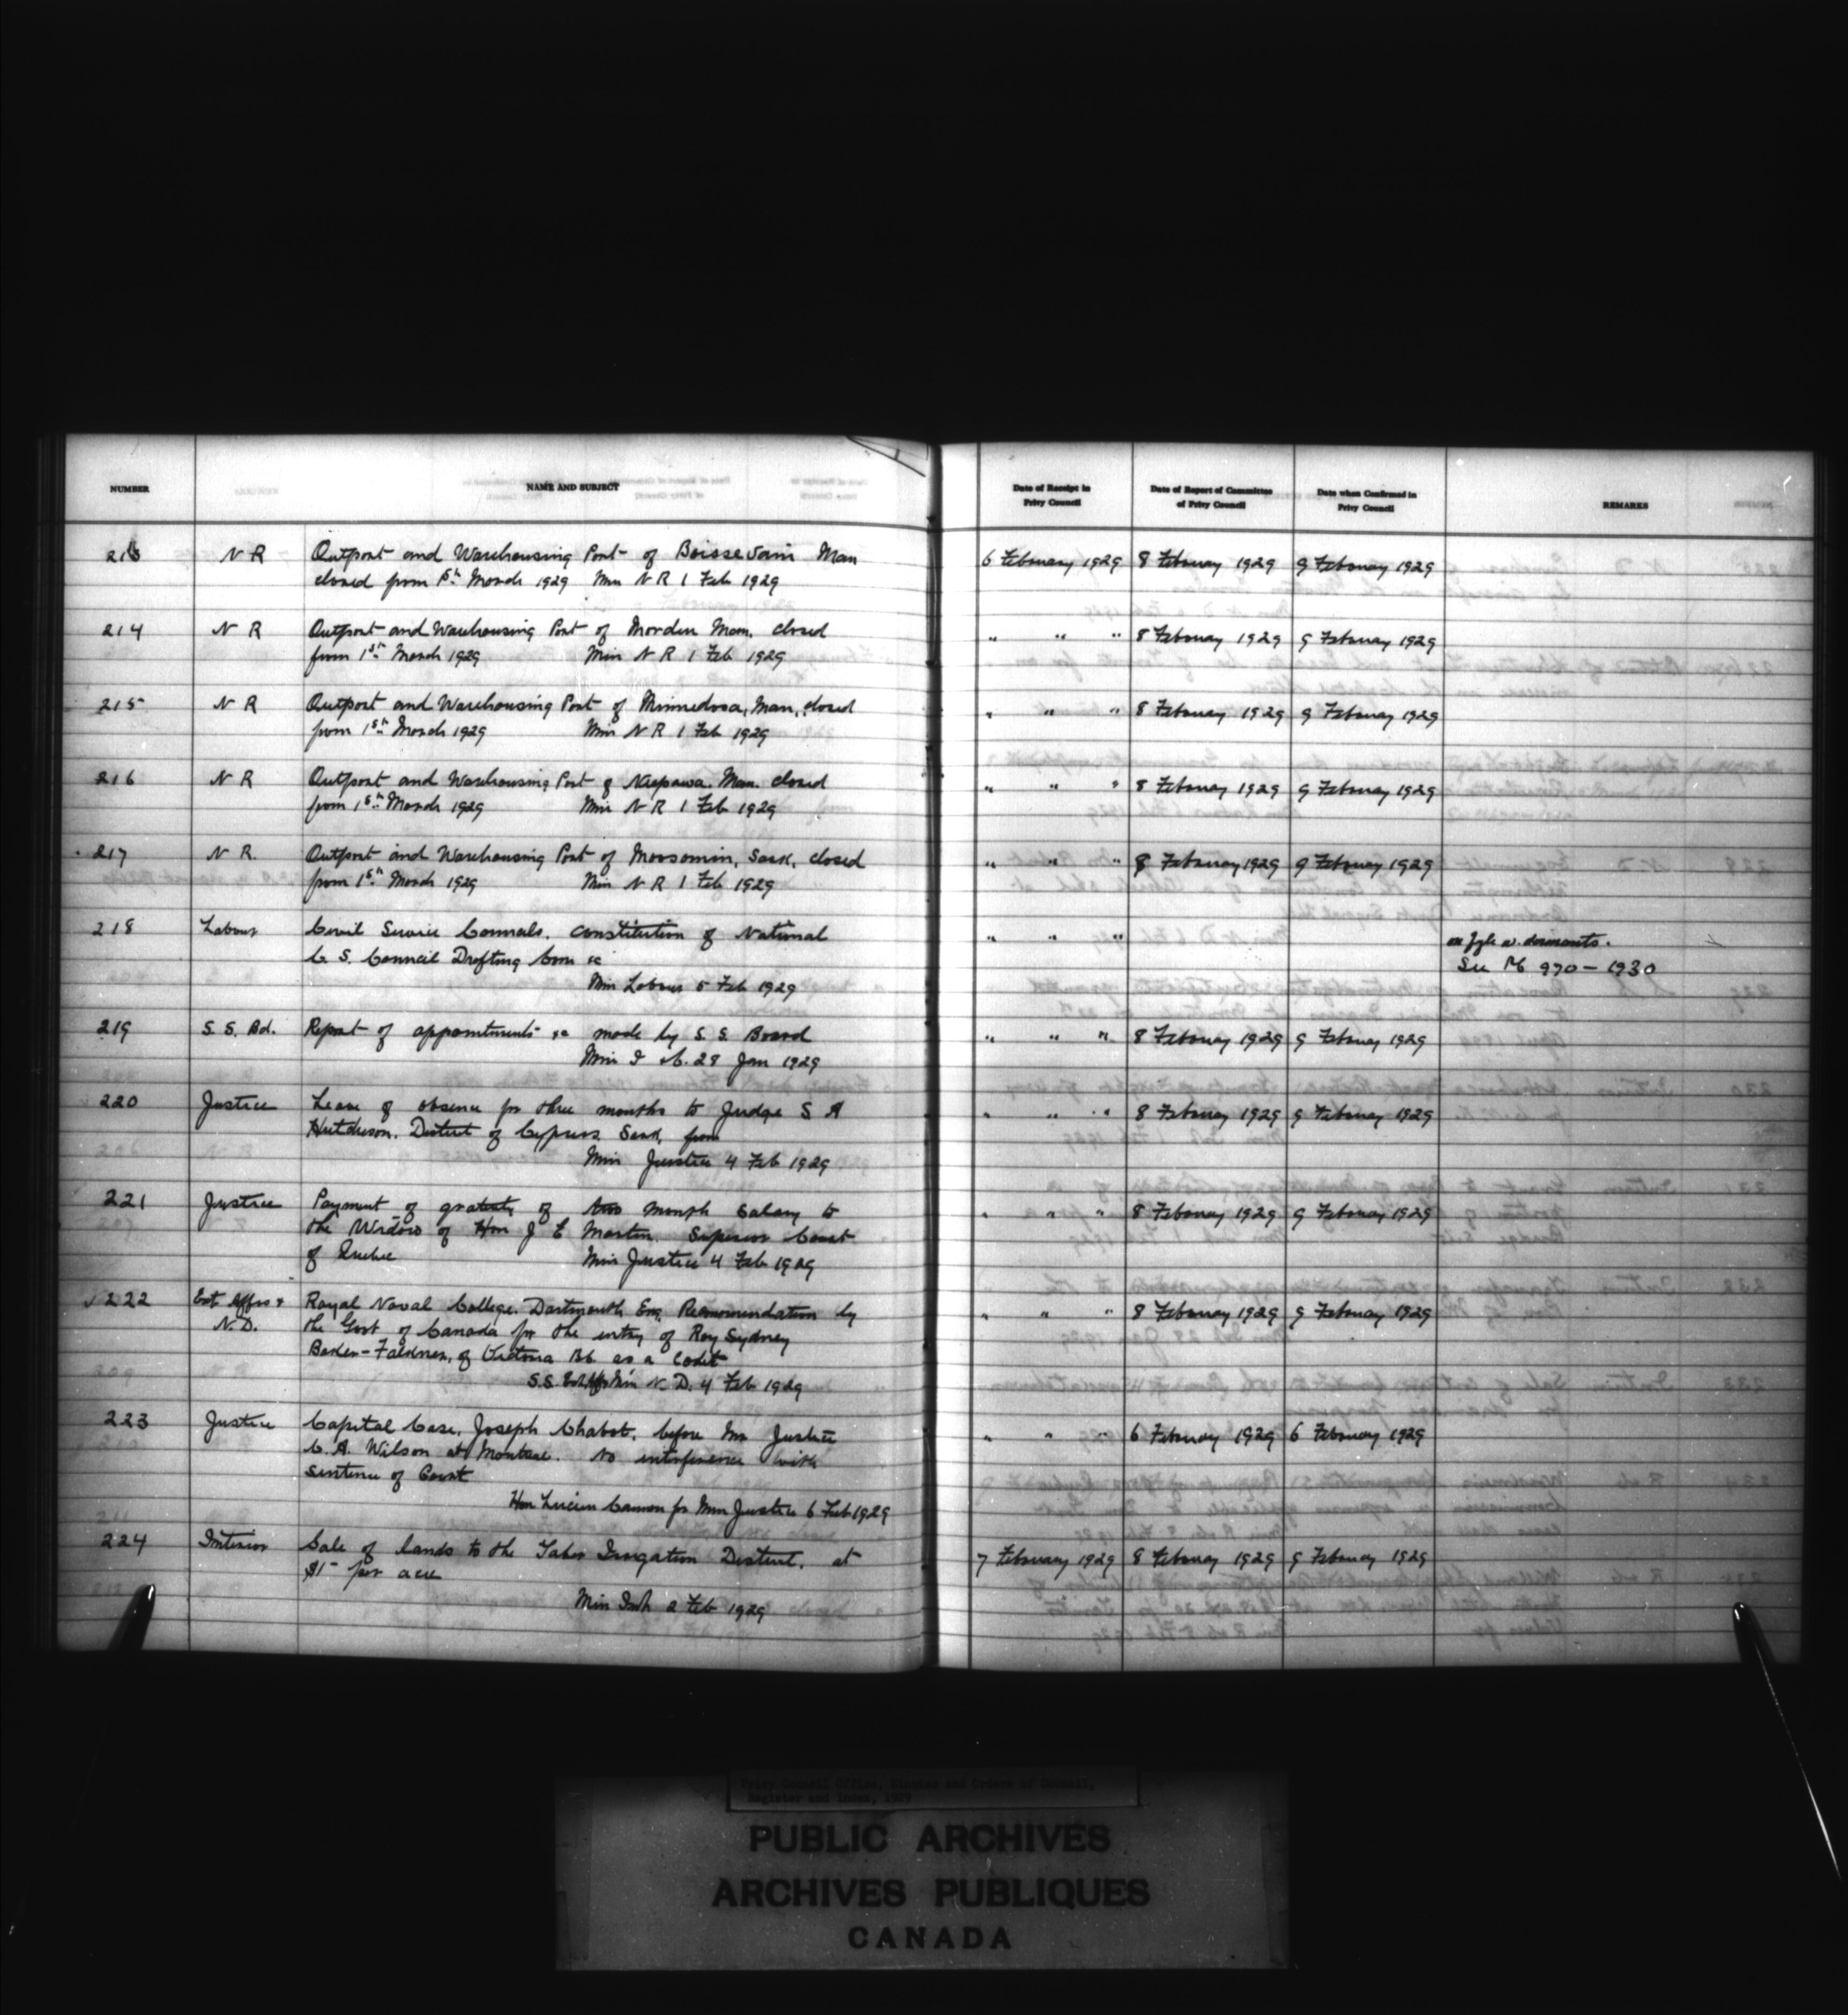 NUMBER NAME AND SUBJECT Date of Receipt in Privy Council Date of Report of Committee of Privy Council Date when Confirmed in Privy Council REMARKS
213 N R Outport and Warehousing Port of Boissevain Man 6 February 1929 8 February 1929 9 February 1929
closed from 1st March 1929 Min N R 1 Feb 1929
214 N R Outport and Warehousing Port of Morden Man. closed " " " 8 February 1929 9 February 1929
from 1st March 1929 Min N R 1 Feb 1929
215 N R Outport and Warehousing Port of Minnedosa, Man, closed " " " 8 February 1929 9 February 1929
from 1st March 1929 Min N R 1 Feb 1929
216 N R Outport and Warehousing Port of Neepawa. Man. closed " " " 8 February 1929 9 February 1929
from 1st March 1929 Min N R 1 Feb 1929
217 N R. Outport and Warehousing Port of Moosomin, Sask, closed " " " 8 February 1929 9 February 1929
from 1st March 1929 Min N R 1 Feb 1929
218 Labour Civil Service Councils. Constitution of National " " "
C. S. Council Drafting Com &c See PC 970 - 1930
Min Labour 5 Feb 1929
219 S. S. Bd. Report of appointments &c made by S. S. Board " " " 8 February 1929 9 February 1929
Min 28 Jan 1929
220 Justice Leave of absence for three months to Judge S A " " " 8 February 1929 9 February 1929
Hutcheson. District of Cypress Sask, from
Min Justice 4 Feb 1929
221 Justice Payment of gratuity of two month Salary to " " " 8 February 1929 9 February 1929
the Widow of Hon J E Martin. Superior Court
of Quebec Min Justice 4 Feb 1929
222 Ext Affrs & Royal Naval College. Dartmouth Eng. Recommendation by " " " 8 February 1929 9 February 1929
N. D. the Govt of Canada for the entry of Roy Sydney
Baker-Falkner, of Victoria BC as a Cadet
S.S. Ext Affrs Min N. D. 4 Feb 1929
223 Justice Capital Case, Joseph Chabot, before Mr Justice " " " 6 February 1929 6 February 1929
C. A. Wilson at Montreal. No interference with
sentence of Court
Hon Lucien Cannon for Min Justice 6 Feb 1929
224 Interior Sale of lands to the Taber Irrigation District. at 7 February 1929 8 February 1929 9 February 1929
$1- per acre
Min Int 2 Feb 1929
Privy Council Office, Minutes and Orders of Council,
Register and Index, 1929
PUBLIC ARCHIVES
ARCHIVES PUBLIQUES
CANADA